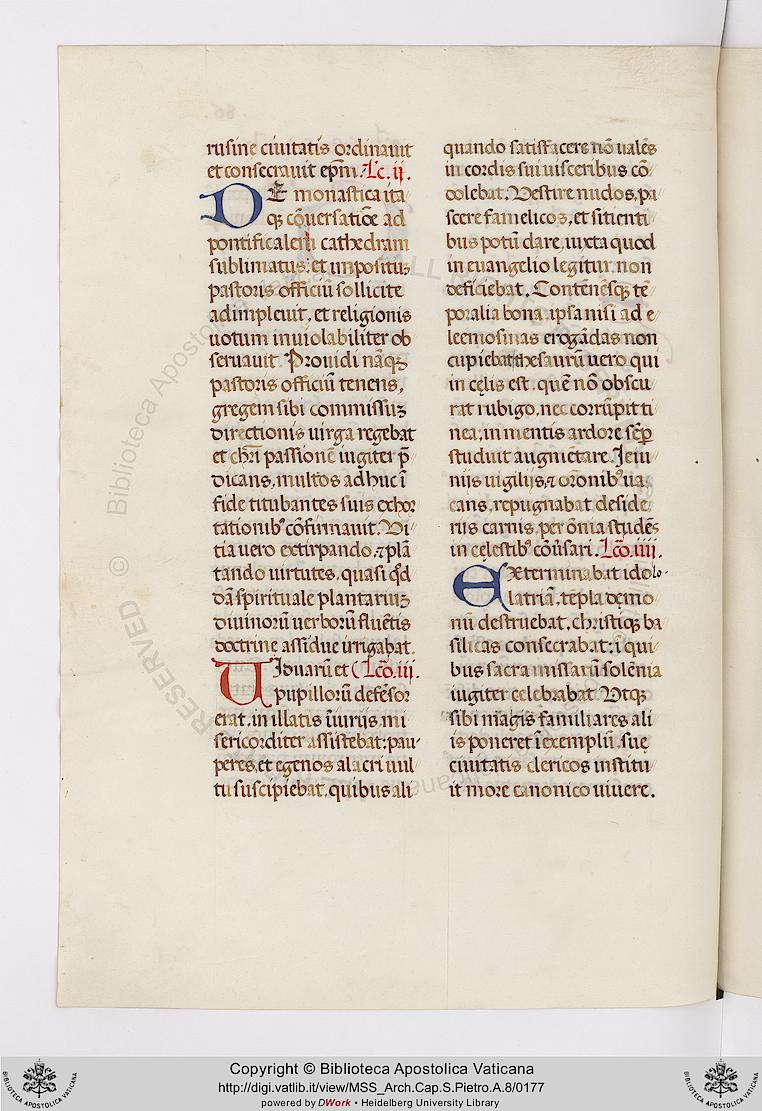 rusine ciuitatis ordinauit
et consecrauit ep̄m. Lc. ij.
DE monastica ita
q; cōuersatiōe ad
pontificalem cathedram
sublimatus: et impositus
pastoris officiū sollicite
adimpleuit, et religionis
uotum inuiolabiliter ob
seruauit. Prouidi nāq;
pastoris officiū tenens,
gregem sibi commissuꝫ
directionis uirga regebat
et chr̄i passionē iugiter p̄
dicans, multos adhuc ī
fide titubantes suis exhor
tationib⁹ cōfirmauit. Vi
tia uero extirpando, ⁊ plā
tando uirtutes, quasi qd̄
dā spirituale plantariuꝫ
diuinorū uerborū fluētis
doctrine assidue irrigabat.
UIduarū et Lcō. iii.
pupillorū defēsor
erat, in illatis īiurijs mi
sericorditer assistebat: pau
peres, et egenos alacri uul
tu suscipiebat, quibus ali
quando satisfacere nō ualēs
in cordis sui uisceribus cō
dolebat. Vestire nudos, pa
scere famelicos, et sitienti
bus potū dare, iuxta quod
in euangelio legitur, non
deficiebat. Contēnēsq; tē
poralia bona, ipsa nisi ad e
leemosinas erogādas non
cupiebat, thesaurū uero, qui
in cęlis est, quē nō obscu
rat rubigo, nec corrūpit ti
nea, in mentis ardore sēp
studuit augmētare. Ieiu
nijs uigilijs, ⁊ orōnib⁹ ua
cans, repugnabat deside
riis carnis, per ōnia studēs
in cęlestib⁹ cōūsari. Lcō. iiii.
EXterminabat idolo
latriā, tēpla demo
nū destruebat, christiq; ba
silicas consecrabat: ī qui
bus sacra missarū solēnia
iugiter celebrabat. Vtq;
sibi magis familiares ali
is poneret ī exemplū, suę
ciuitatis clericos institu
it more canonico uiuere.
Copyright © Biblioteca Apostolica Vaticana
http://digi.vatlib.it/view/MSS_Arch.Cap.S.Pietro.A.8/0177
powered by DWork • Heidelberg University Library